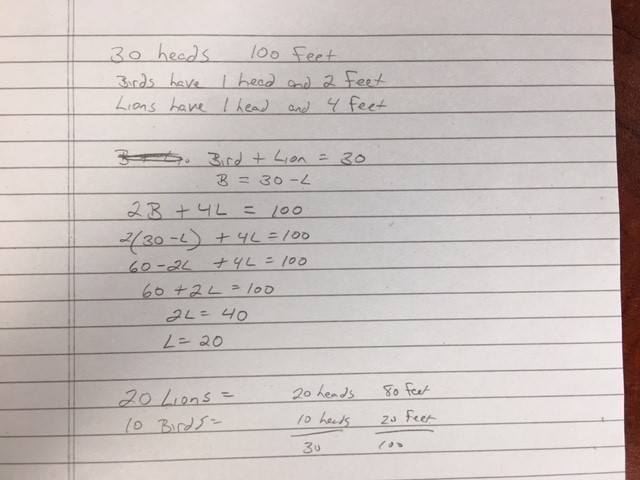 30 heads 100 Feet
Birds have 1 head and 2 feet
Lions have 1 head and 4 feet
Bird + Lion = 30
B = 30 - L
2B + 4L = 100
2(30-L) + 4L = 100
60 - 2L + 4L = 100
60 + 2L = 100
2L = 40
L = 20
20 Lions = 20 heads 80 feet
10 Birds = 10 heads 20 Feet
30 100